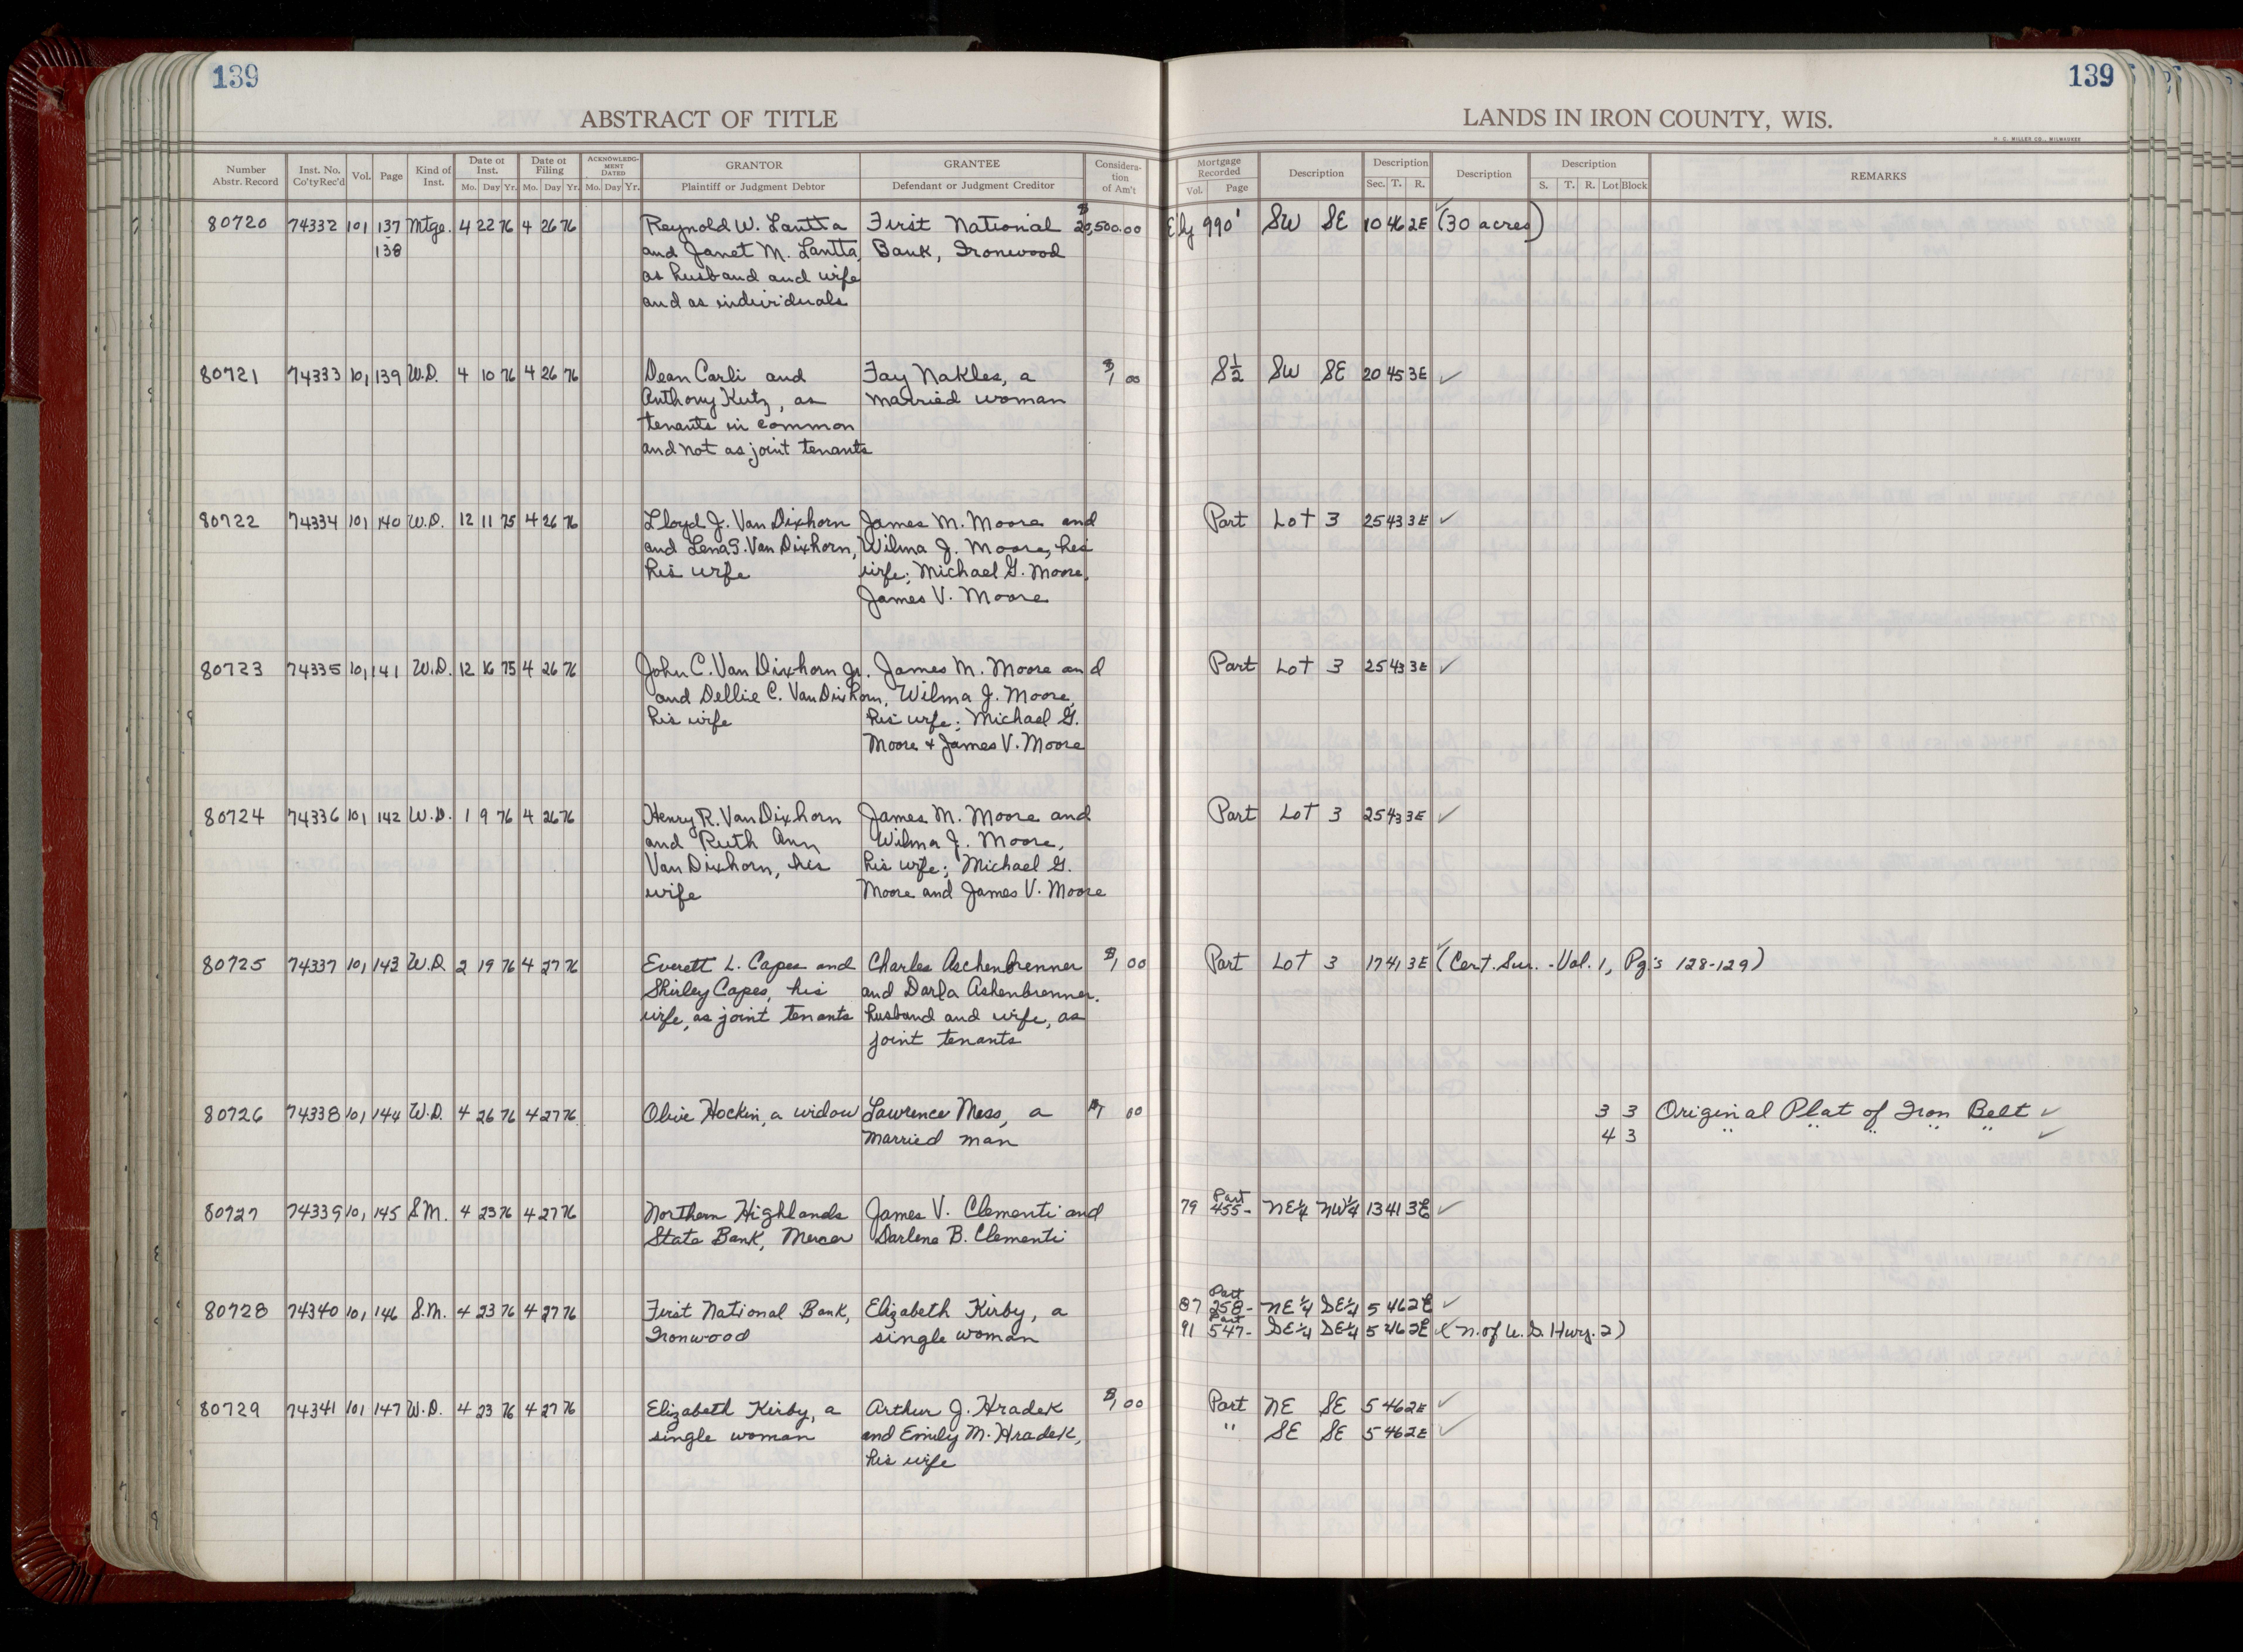 139
139
ABSTRACT OF TITLE
LANDS IN IRON COUNTY, WIS.
H. C. MILLER CO., MILWAUKEE
Number Abstr. Record Inst. No. Co'ty Rec'd Vol. Page Kind of Inst. Date of Inst. Mo. Day Yr. Date of Filing Mo. Day Yr. ACKNOWLEDG-MENT DATED Mo. Day Yr. GRANTOR Plaintiff or Judgment Debtor GRANTEE Defendant or Judgment Creditor Considera-tion of Am't Mortgage Recorded Vol. Page Description Description Sec. T. R. Description Description S. T. R. Lot Block REMARKS
80720 74332 101 137 Mtge. 4 22 76 4 26 76 Reynold W. Lantta First National $20,500.00 Ely 990' SW SE 10 46 2E (30 acres)
138 and Janet M. Lantta, Bank, Ironwood
as husband and wife
and as individuals
80721 74333 101 139 W.D. 4 10 76 4 26 76 Dean Carli and Fay Nakles, a $1 00 S½ SW SE 20 45 3E ✓
Anthony Kutz, as married woman
tenants in common
and not as joint tenants
80722 74334 101 140 W.D. 12 11 75 4 26 76 Lloyd J. Van Dixhorn James M. Moore and Part Lot 3 25 43 3E ✓
and Lena S. Van Dixhorn, Wilma J. Moore, his
his wife wife; Michael G. Moore,
James V. Moore
80723 74335 101 141 W.D. 12 16 75 4 26 76 John C. Van Dixhorn Jr. James M. Moore and Part Lot 3 25 43 3E ✓
and Dellie C. Van Dixhorn, Wilma J. Moore,
his wife his wife; Michael G.
Moore + James V. Moore
80724 74336 101 142 W.D. 1 9 76 4 26 76 Henry R. Van Dixhorn James M. Moore and Part Lot 3 25 43 3E ✓
and Ruth Ann Wilma J. Moore,
Van Dixhorn, his his wife; Michael G.
wife Moore and James V. Moore
80725 74337 101 143 W.D. 2 19 76 4 27 76 Everett L. Capes and Charles Aschenbrenner $1 00 Part Lot 3 17 41 3E (Cert. Sur. - Vol. 1, Pg's 128-129)
Shirley Capes, his and Darla Ashenbrenner,
wife, as joint tenants husband and wife, as
joint tenants
80726 74338 101 144 W.D. 4 26 76 4 27 76 Olive Hockin, a widow Lawrence Mess, a $1 00 3 3 Original Plat of Iron Belt ✓
married man 4 3 " " " " " ✓
80727 74339 101 145 S.M. 4 23 76 4 27 76 Northern Highlands James V. Clementi and 79 Part 455- NE¼ NW¼ 13 41 3E ✓
State Bank, Mercer Darlene B. Clementi
80728 74340 101 146 S.M. 4 23 76 4 27 76 First National Bank, Elizabeth Kirby, a 87 Part 258- NE¼ SE¼ 5 46 2E ✓
Ironwood single woman 91 Part 547- SE¼ SE¼ 5 46 2E ✓ (N. of U.S. Hwy. 2)
80729 74341 101 147 W.D. 4 23 76 4 27 76 Elizabeth Kirby, a Arthur J. Hradek $1 00 Part NE SE 5 46 2E ✓
single woman and Emily M. Hradek, " SE SE 5 46 2E ✓
his wife